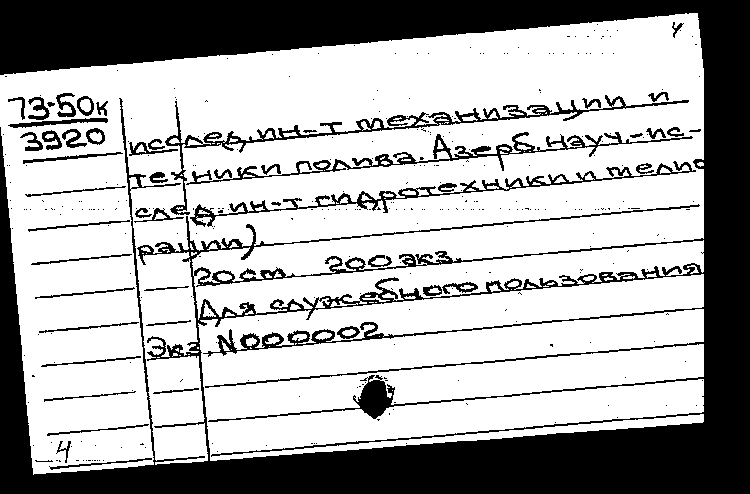 4
73-50к
3920
исслед. ин-т механизации и
техники полива. Азерб. науч.-ис-
след. ин-т гидротехники и мелио
рации).
20 см. 200 экз.
Для служебного пользования
Экз. N000002.
4